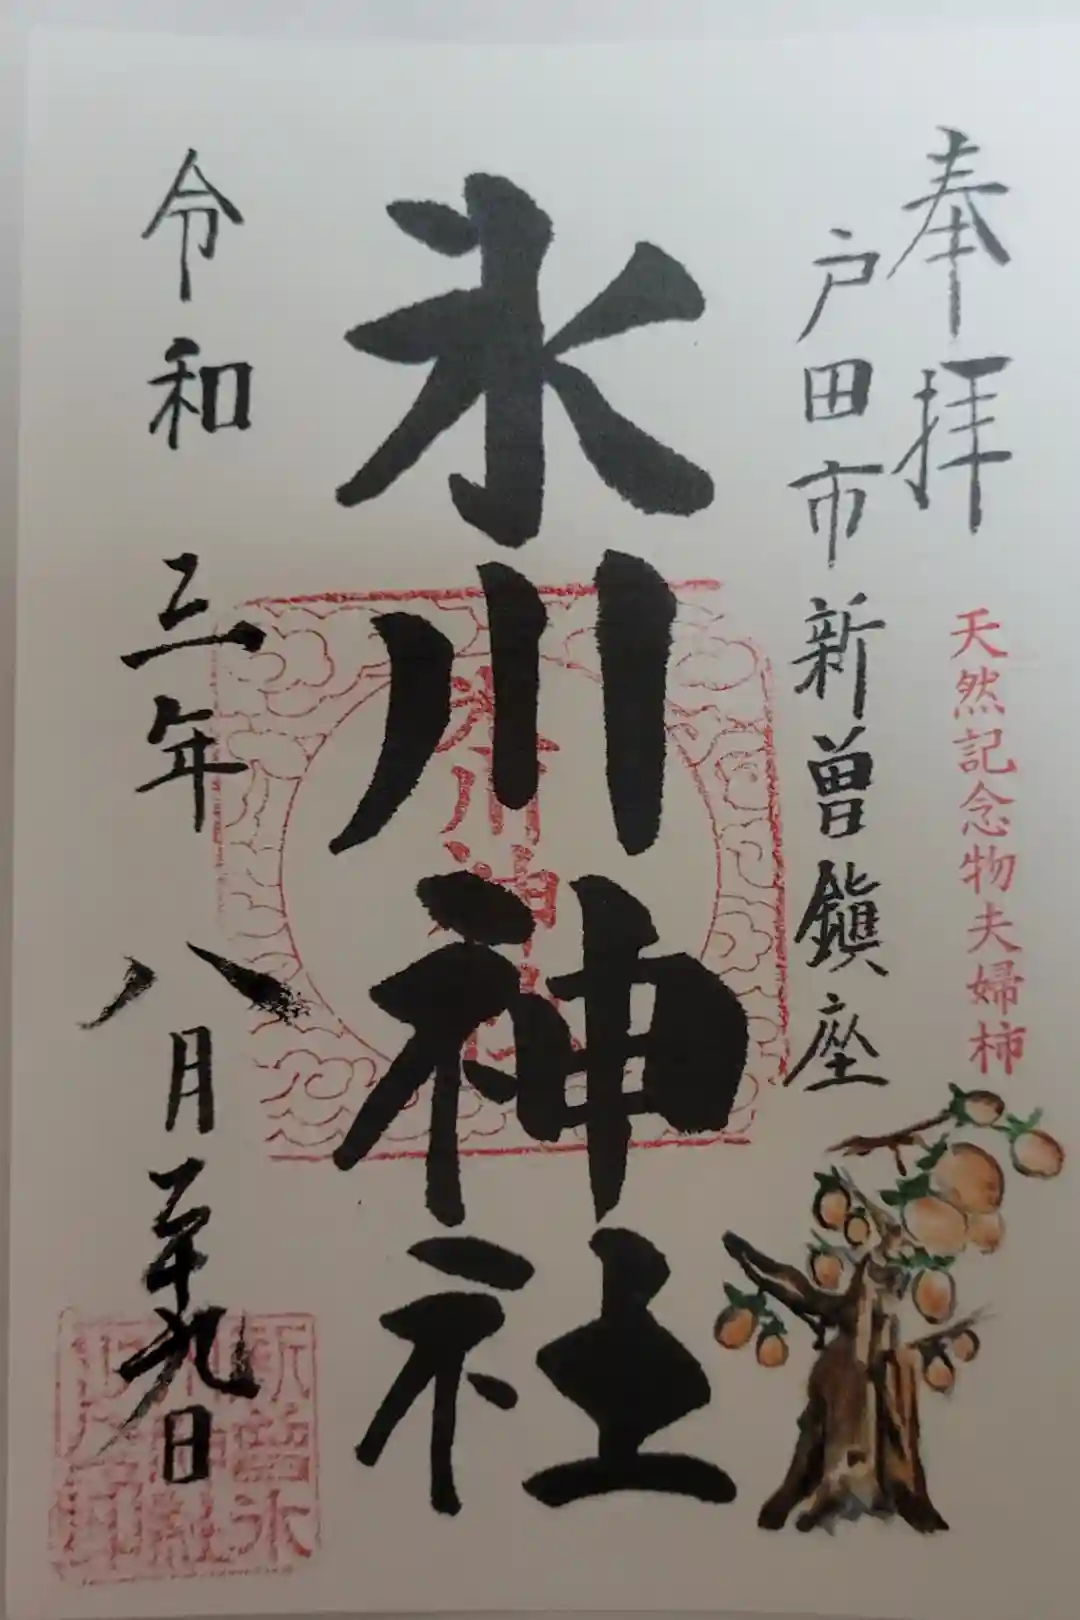 奉拝
天然記念物夫婦柿
戸田市新曽鎮座
氷川神社
氷川神社
令和三年八月二十九日
新曽氷
川神社